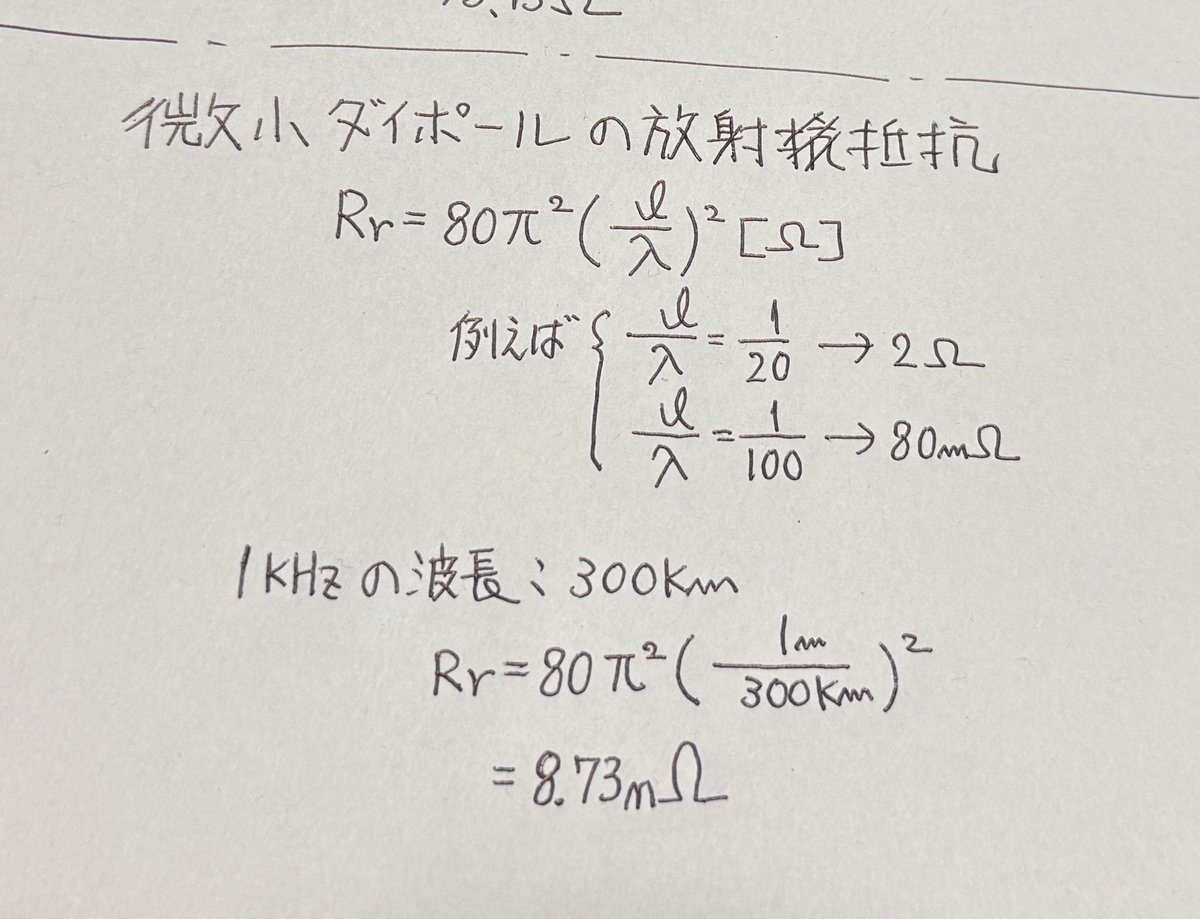 微小ダイポールの放射抵抗
Rr = 80π²(l/λ)² [Ω]
例えば { l/λ = 1/20 → 2Ω
l/λ = 1/100 → 80mΩ
1KHzの波長:300Km
Rr = 80π²(1m/300Km)²
= 8.73mΩ